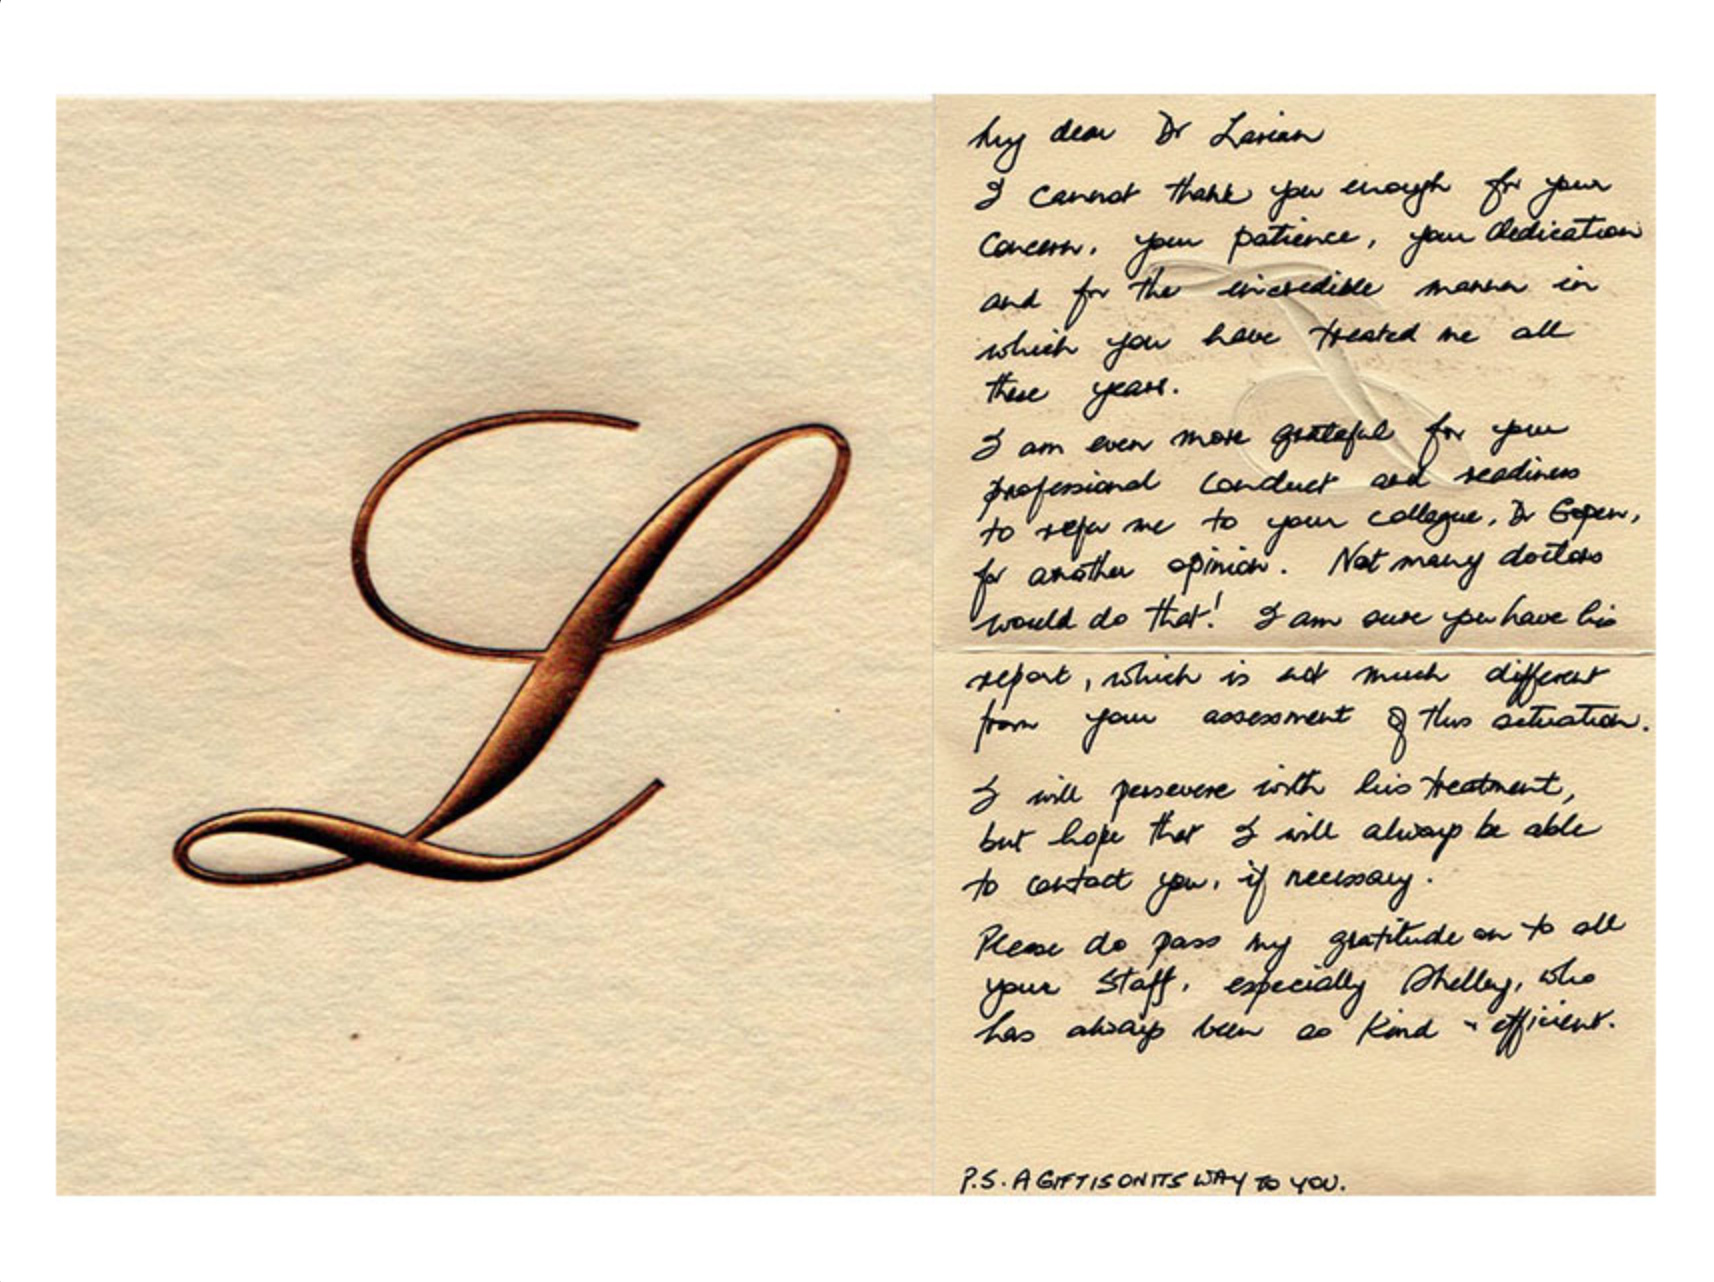 L
My dear Dr Larian
I cannot thank you enough for your
concern, your patience, your dedication
and for the incredible manner in
which you have treated me all
these years.
I am even more grateful for your
professional conduct and readiness
to refer me to your collegue, Dr Gopen,
for another opinion. Not many doctors
would do that! I am sure you have his
report, which is not much different
from your assessment of this situation.
I will persevere with his treatment,
but hope that I will always be able
to contact you, if necessary.
Please do pass my gratitude on to all
your staff, especially Shelley, who
has always been so kind & efficient.
P.S. A GIFT IS ON ITS WAY TO YOU.